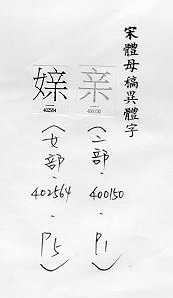 宋體母稿異體字
亲
400150
(二部.400150.P1)
402564
(女部.402564.P5)